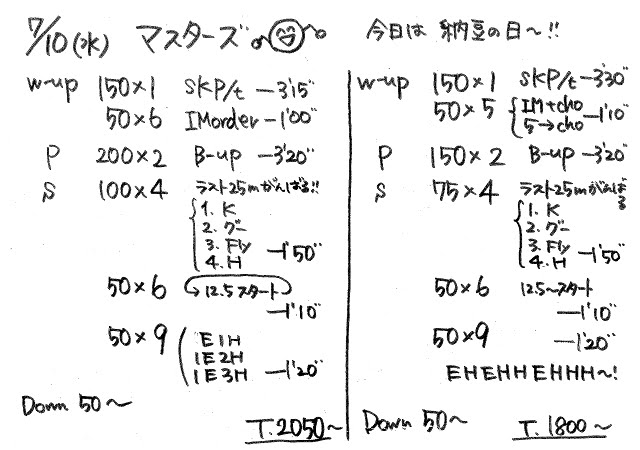 7/10(水) マスターズ 今日は 納豆の日〜!!
W-up 150×1 SKP/t —3'15"
50×6 IMorder —1'00"
P 200×2 B-up —3'20"
S 100×4 ラスト25mがんばる!!
1. K
2. グー
3. Fly
4. H —1'50"
50×6 12.5スタート
—1'10"
50×9 E1H
1E2H
1E3H —1'20"
Down 50〜
T. 2050〜
W-up 150×1 SKP/t —3'30"
50×5 IM+cho
5→cho —1'10"
P 150×2 B-up —3'20"
S 75×4 ラスト25mがんばる
1. K
2. グー
3. Fly
4. H —1'50"
50×6 12.5〜スタート
—1'10"
50×9 —1'20"
EHEHHEHHH〜!
Down 50〜
T. 1800〜